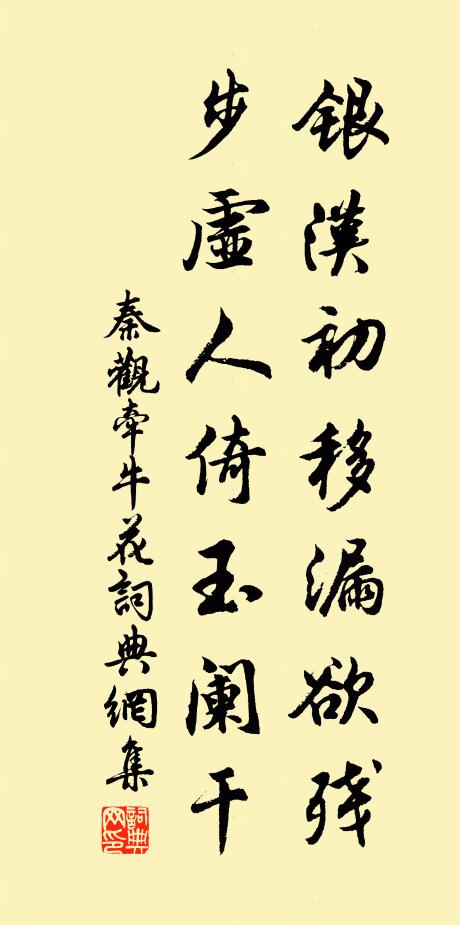 银漢初移漏欲残
步虛人倚玉阑干
秦觀牽牛花詞典網集
詞典网印